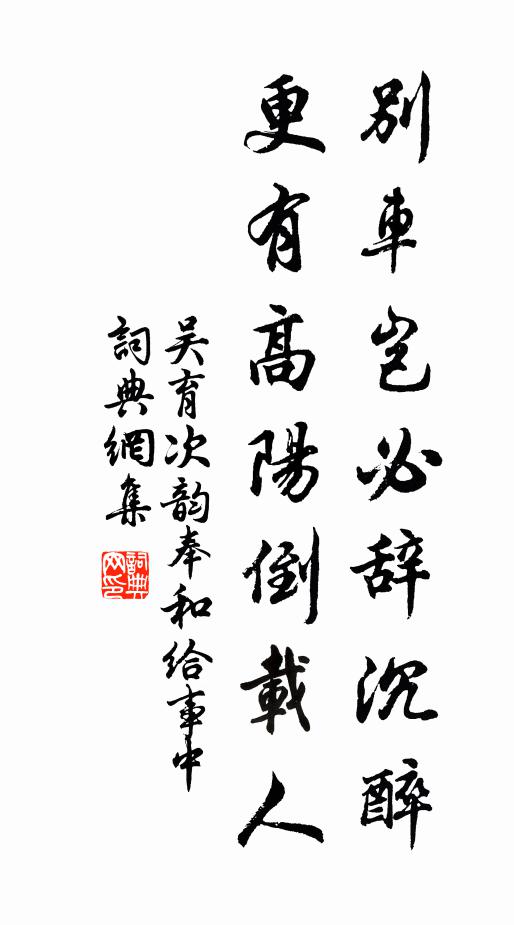 別車豈必辞沉醉
更有高陽倒載人
吴育次韵奉和给事中
詞典網集
詞典网印